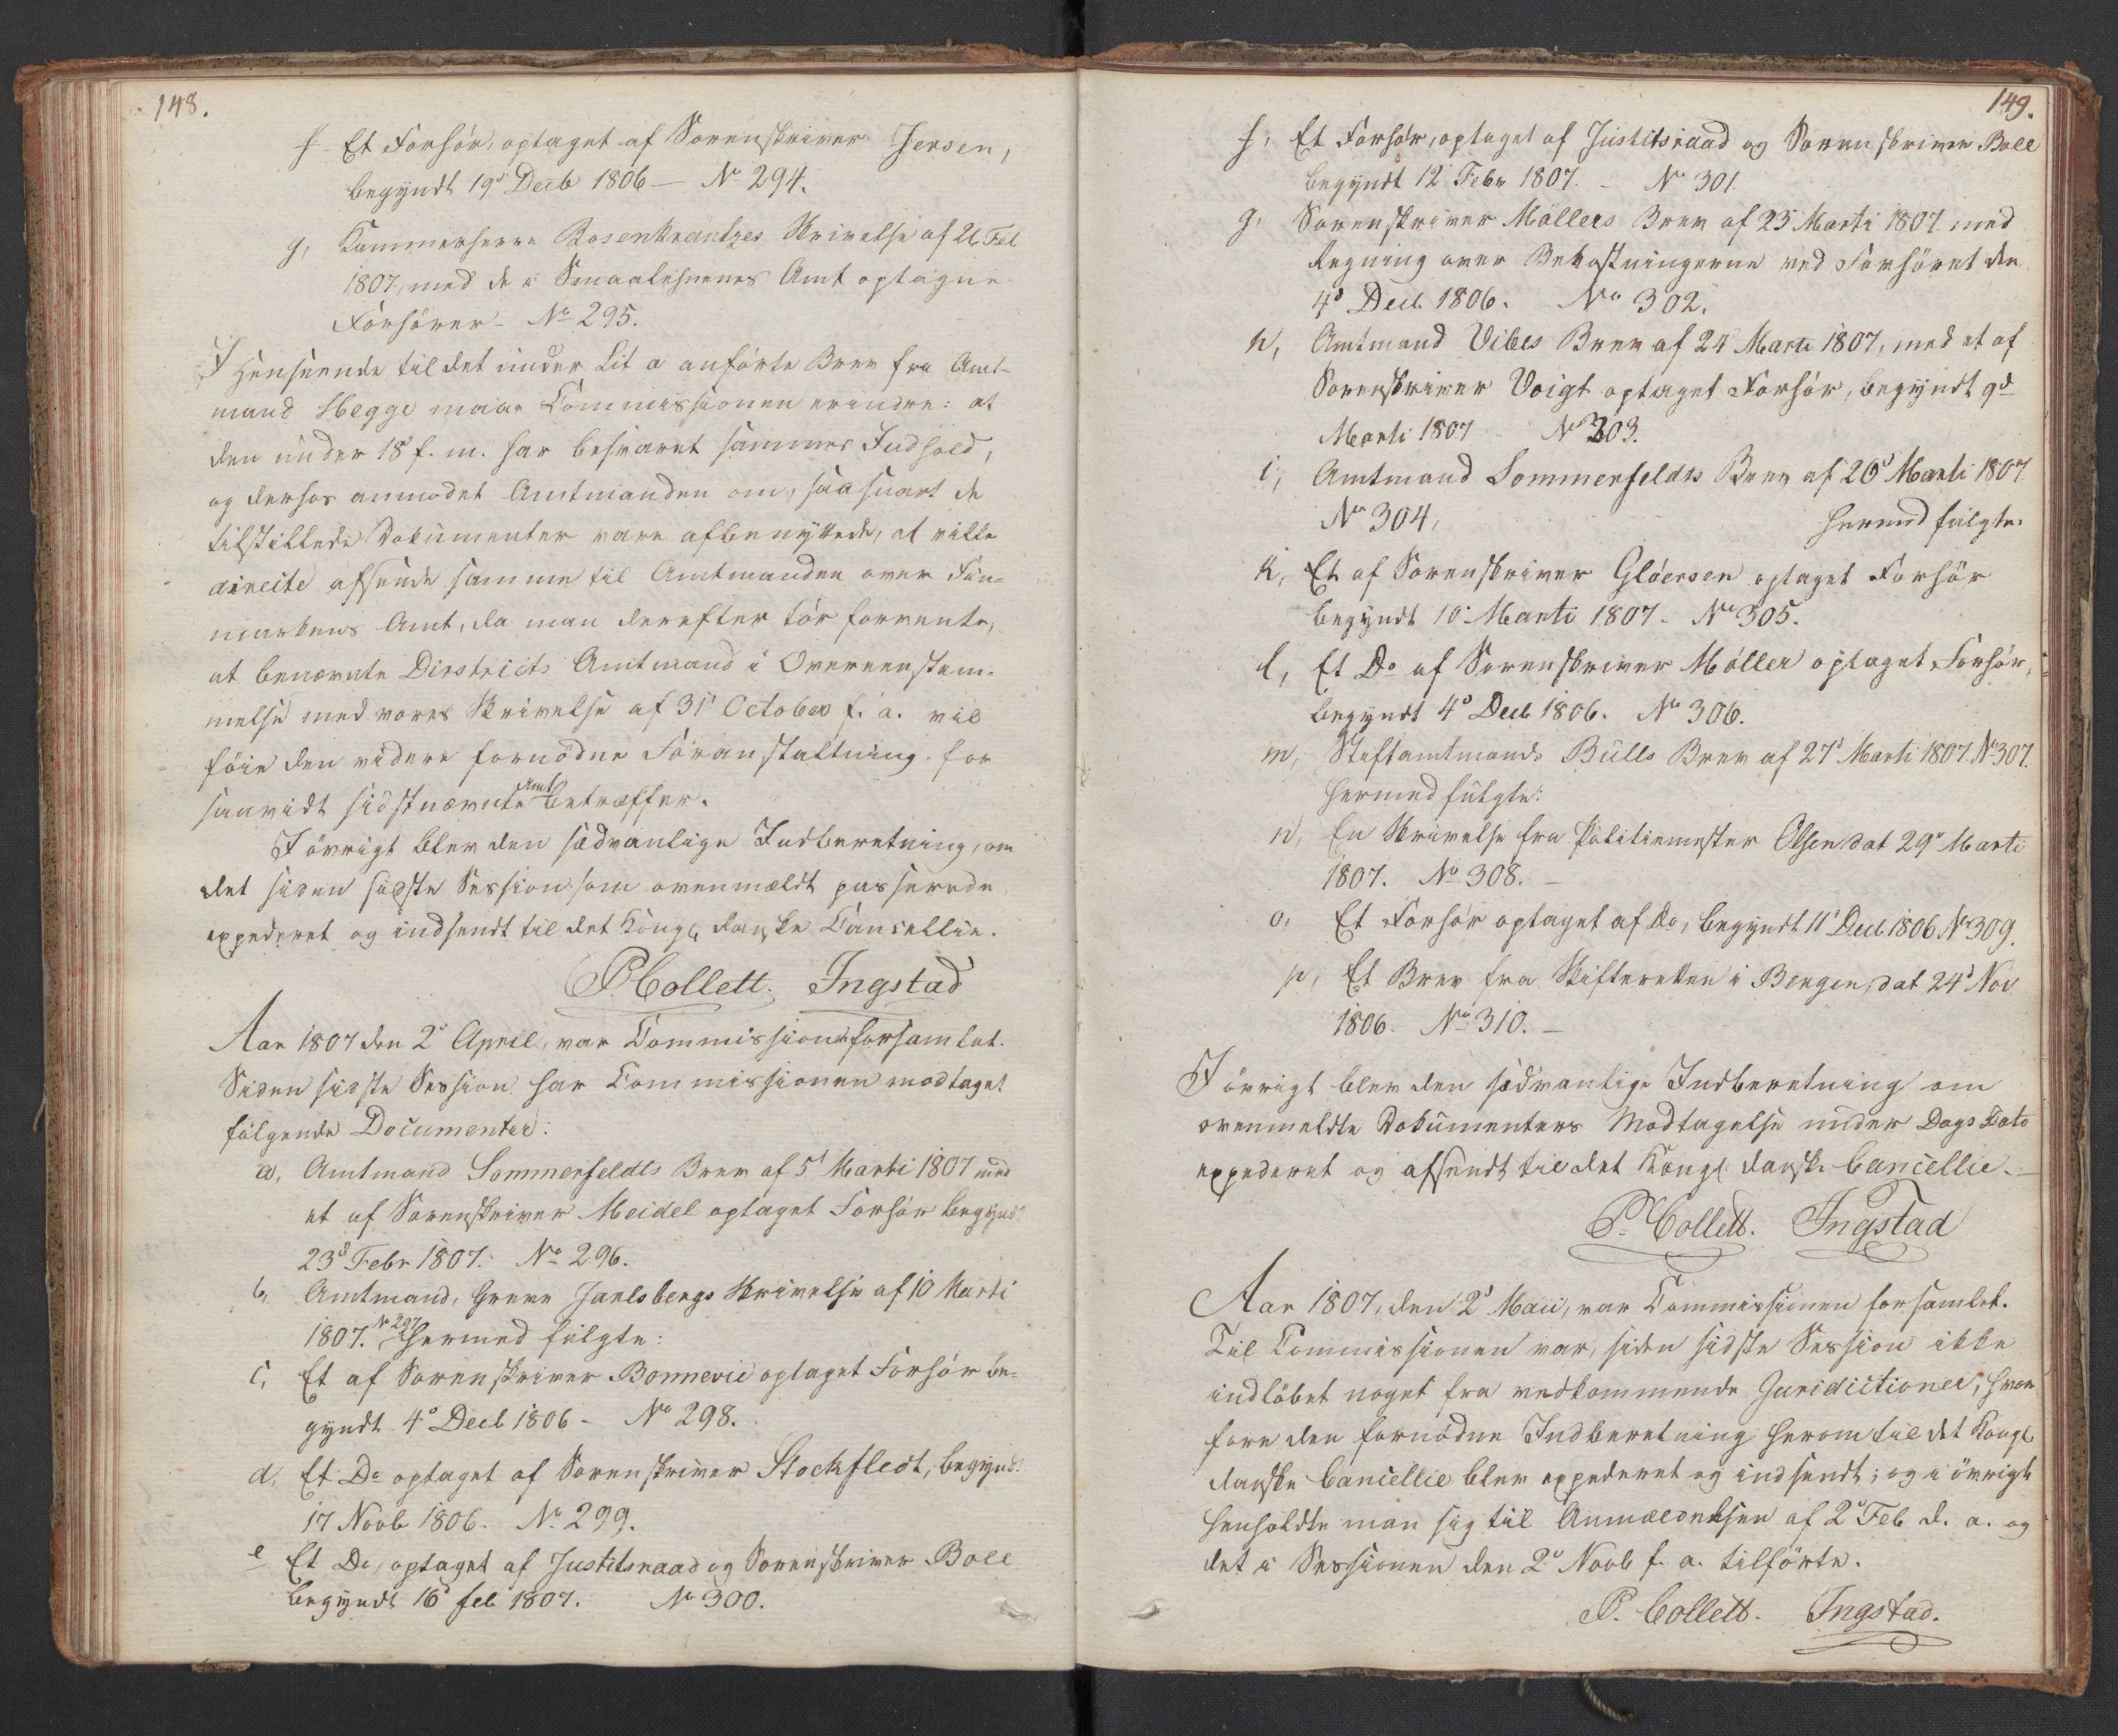 148.
f. Et Forhör, optaget af Sorenskriver Jersen,
begyndt 19d Decb 1806 — No 294.
g, Kammerherre Rosenkrantzes Skrivelse af 26 Feb
1807, med de i Smaalehnenes Amt optagne
Forhörer - No 295.
I Henseende til det under Lit a anförte Brev fra Amt-
mand Hegge maae Commissionen erindre: at
den under 18d f. m. har besvaret sammes Indhold,
og derhos anmodet Amtmanden om, saasnart de
tilstillede Dokumenter vare afbenyttede, at ville
directe afsende samme til Amtmanden over Fin-
markens Amt, da man derefter tör forvente,
at benævnte Districts Amtmand i Overeenstem-
melse med vores Skrivelse af 31' October f. a. vil
föie den videre fornödne Foranstaltning for
saavidt sidstnævnte Amt betræffer.
I övrigt blev den sædvanlige Indberetning, om
det siden sidste Session som ovenmældt passerede
expederet og indsendt til det Kongl danske Cancellie.
P. Collett. Ingstad
Aar 1807 den 2d April, var Commissionen forsamlet.
Siden sidste Session har Commissionen modtaget
fölgende Documenter:
a, Amtmand Sommerfeldts Brev af 5t Marti 1807 med
et af Sorenskriver Meidel optaget Forhör begynd
23d Febr 1807. No 296.
b, Amtmand, Greve Jarlsbergs Skrivelse af 10 Marti
1807. No 297 Hermed fulgte:
c, Et af Sorenskriver Bonnevie optaget Forhör be-
gyndt 4d Decb 1806 - No 298.
d, Et Do optaget af Sorenskriver Stockfledt, begynd.
17 Novb 1806. No 299.
e Et Do, optaget af Justitsraad og Sorenskriver Boll
begyndt 16d feb 1807. No 300.
149.
f, Et Forhör, optaget af Justitsraad og Sorenskriver Boll
begyndt 12 Febr 1807. - No 301.
g, Sorenskriver Möllers Brev af 23 Marti 1807 med
Regning over Bekostningerne ved Forhöret den
4d Decb 1806. No 302.
h, Amtmand Vibes Brev af 24 Marti 1807, med et af
Sorenskriver Voigt optaget Forhör, begyndt 9d
Marti 1807 - No 303.
i, Amtmand Sommerfeldts Brev af 26d Marti 1807
No 304, Hermed fulgte:
k, Et af Sorenskriver Glöersen optaget Forhör
begyndt 10' Marti 1807 - No 305.
l, Et Do af Sorenskriver Möller optaget Forhör,
begyndt 4d Decb 1806. No 306.
m, Stiftamtmand Bulls Brev af 27d Marti 1807. No 307.
Hermed fulgte:
n, En Skrivelse fra Politiemester Olsen dat 29d Marti
1807. No 308. —
o, Et Forhör optaget af Do, begyndt 11' Decb 1806 No 309.
p, Et Brev fra Skifteretten i Bergen, dat 24d Nov
1806. No 310. —
I övrigt blev den sædvanlige Indberetning om
ovenmeldte Dokumenters Modtagelse under Dags Dato
expederet og afsendt til det Kongl danske Cancellie. —
P. Collett. Ingstad
Aar 1807, den 2d Maii, var Commissionen forsamlet.
Til Commissionen var, siden sidste Session ikke
indlöbet noget fra vedkommende Juridictioner, hvor
fore den fornödne Indberetning herom til det Kongl
danske Cancellie blev expederet og indsendt; og i övrigt
henholdte man sig til Anmeldelsen af 2d Feb d. a. og
det i Sessionen den 2d Novb f. a. tilförte.
P. Collett. Ingstad.